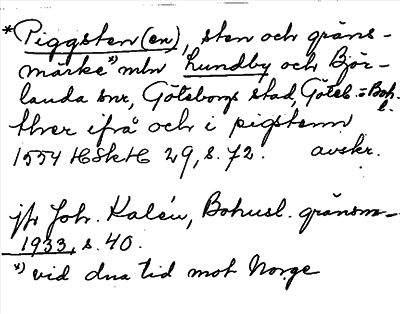 *Piggsten(en), sten och gräns-
märke*) mln Lundby och Bör-
landa snr, Göteborgs stad, Göteb. o Boh. l.
ther ifrå och i pigstenn
1554 HSkH 29, s. 72. avskr.
jfr Joh. Kalén, Bohusl. gränsm-
1933, s. 40.
*) vid dna tid mot Norge